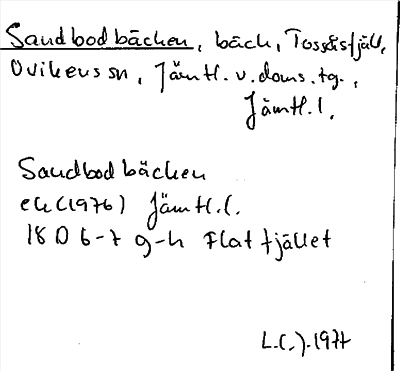 Sandbodbäcken, bäck, Tossåsfjäll,
Ovikens sn, Jämtl. v. doms. tg.,
Jämtl. l.
Sandbodbäcken
ek (1976) Jämtl. l.
18 D 6-7 g-h Flatfjället
1977